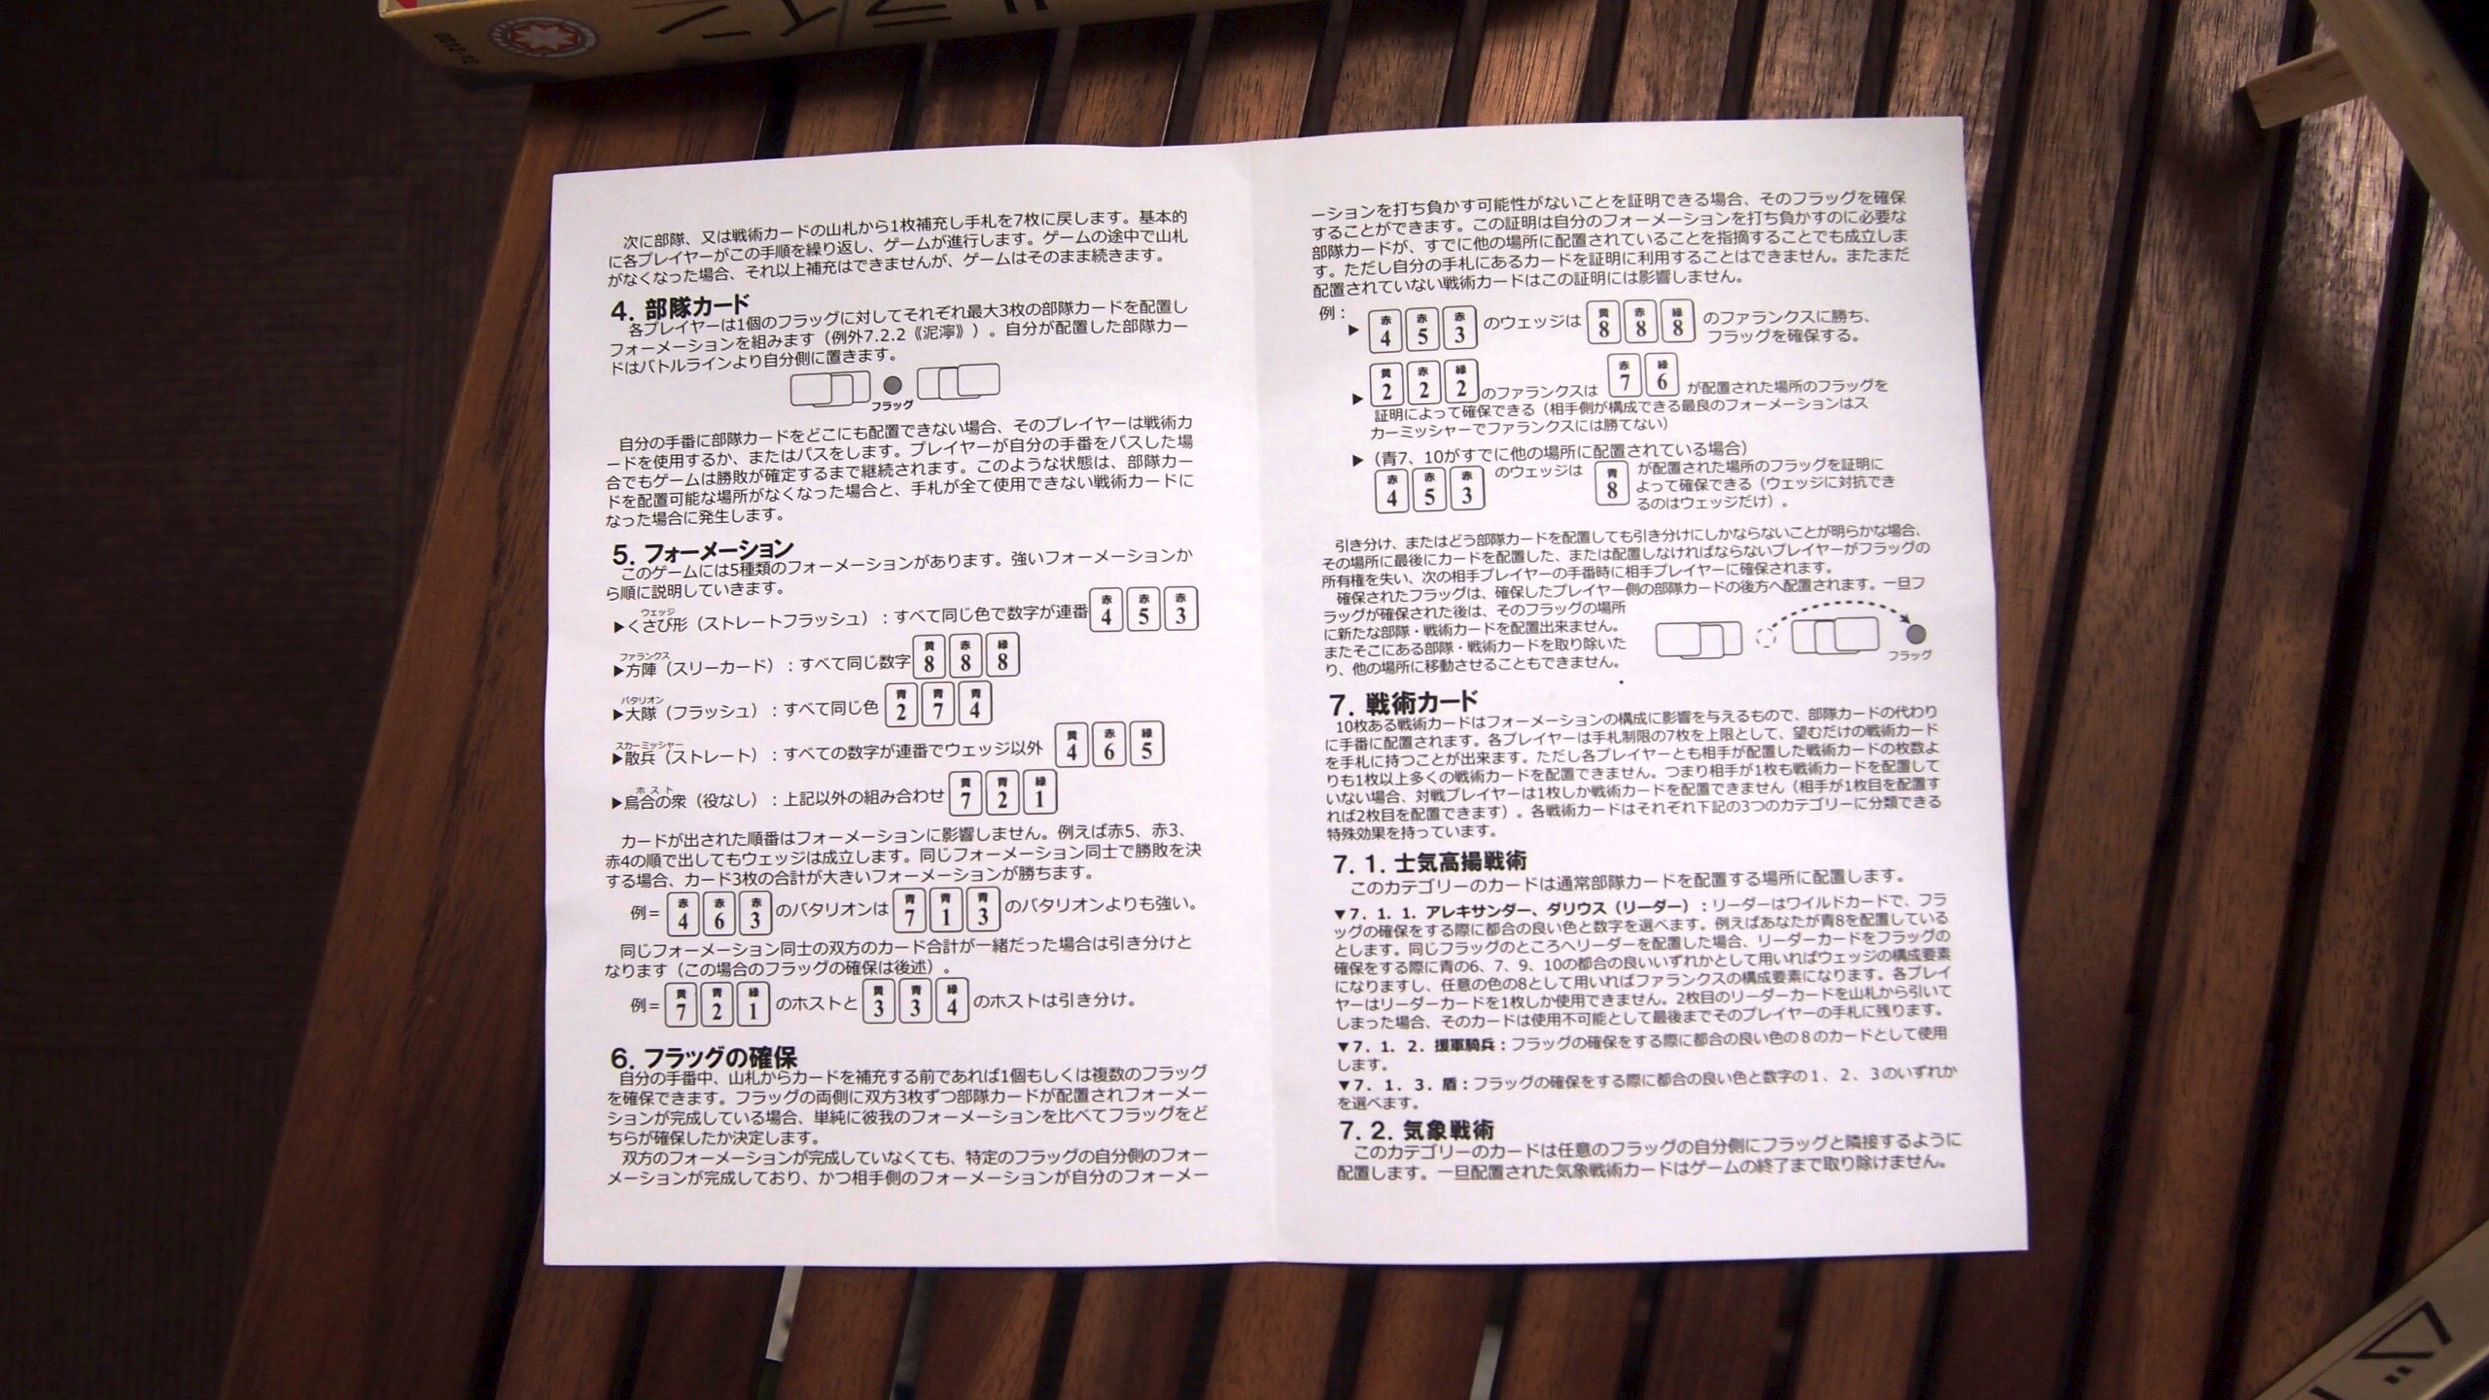 次に部隊、又は戦術カードの山札から1枚補充し手札を7枚に戻します。基本的
に各プレイヤーがこの手順を繰り返し、ゲームが進行します。ゲームの途中で山札
がなくなった場合、それ以上補充はできませんが、ゲームはそのまま続きます。
4. 部隊カード
各プレイヤーは1個のフラッグに対してそれぞれ最大3枚の部隊カードを配置し
フォーメーションを組みます（例外7.2.2《泥濘》）。自分が配置した部隊カー
ドはバトルラインより自分側に置きます。
フラッグ
自分の手番に部隊カードをどこにも配置できない場合、そのプレイヤーは戦術カ
ードを使用するか、またはパスをします。プレイヤーが自分の手番をパスした場
合でもゲームは勝敗が確定するまで継続されます。このような状態は、部隊カー
ドを配置可能な場所がなくなった場合と、手札が全て使用できない戦術カードに
なった場合に発生します。
5. フォーメーション
このゲームには5種類のフォーメーションがあります。強いフォーメーションか
ら順に説明していきます。
ウェッジ
▶くさび形（ストレートフラッシュ）：すべて同じ色で数字が連番 赤4 赤5 赤3
ファランクス
▶方陣（スリーカード）：すべて同じ数字 黄8 赤8 緑8
バタリオン
▶大隊（フラッシュ）：すべて同じ色 青2 青7 青4
スカーミッシャー
▶散兵（ストレート）：すべての数字が連番でウェッジ以外 黄4 赤6 緑5
ホスト
▶烏合の衆（役なし）：上記以外の組み合わせ 黄7 青2 緑1
カードが出された順番はフォーメーションに影響しません。例えば赤5、赤3、
赤4の順で出してもウェッジは成立します。同じフォーメーション同士で勝敗を決
する場合、カード3枚の合計が大きいフォーメーションが勝ちます。
例＝ 赤4 赤6 赤3 のバタリオンは 青7 青1 青3 のバタリオンよりも強い。
同じフォーメーション同士の双方のカード合計が一緒だった場合は引き分けと
なります（この場合のフラッグの確保は後述）。
例＝ 黄7 青2 緑1 のホストと 黄3 青3 緑4 のホストは引き分け。
6. フラッグの確保
自分の手番中、山札からカードを補充する前であれば1個もしくは複数のフラッグ
を確保できます。フラッグの両側に双方3枚ずつ部隊カードが配置されフォーメー
ションが完成している場合、単純に彼我のフォーメーションを比べてフラッグをど
ちらが確保したか決定します。
双方のフォーメーションが完成していなくても、特定のフラッグの自分側のフォー
メーションが完成しており、かつ相手側のフォーメーションが自分のフォーメー
ーションを打ち負かす可能性がないことを証明できる場合、そのフラッグを確保
することができます。この証明は自分のフォーメーションを打ち負かすのに必要な
部隊カードが、すでに他の場所に配置されていることを指摘することでも成立しま
す。ただし自分の手札にあるカードを証明に利用することはできません。またまだ
配置されていない戦術カードはこの証明には影響しません。
例：
▶ 赤4 赤5 赤3 のウェッジは 黄8 赤8 緑8 のファランクスに勝ち、
フラッグを確保する。
▶ 黄2 赤2 緑2 のファランクスは 赤7 緑6 が配置された場所のフラッグを
証明によって確保できる（相手側が構成できる最良のフォーメーションはス
カーミッシャーでファランクスには勝てない）
▶（青7、10がすでに他の場所に配置されている場合）
赤4 赤5 赤3 のウェッジは 青8 が配置された場所のフラッグを証明に
よって確保できる（ウェッジに対抗でき
るのはウェッジだけ）。
引き分け、またはどう部隊カードを配置しても引き分けにしかならないことが明らかな場合、
その場所に最後にカードを配置した、または配置しなければならないプレイヤーがフラッグの
所有権を失い、次の相手プレイヤーの手番時に相手プレイヤーに確保されます。
確保されたフラッグは、確保したプレイヤー側の部隊カードの後方へ配置されます。一旦フ
ラッグが確保された後は、そのフラッグの場所
に新たな部隊・戦術カードを配置出来ません。
またそこにある部隊・戦術カードを取り除いた
り、他の場所に移動させることもできません。
フラッグ
7. 戦術カード
10枚ある戦術カードはフォーメーションの構成に影響を与えるもので、部隊カードの代わり
に手番に配置されます。各プレイヤーは手札制限の7枚を上限として、望むだけの戦術カード
を手札に持つことが出来ます。ただし各プレイヤーとも相手が配置した戦術カードの枚数よ
りも1枚以上多くの戦術カードを配置できません。つまり相手が1枚も戦術カードを配置して
いない場合、対戦プレイヤーは1枚しか戦術カードを配置できません（相手が1枚目を配置す
れば2枚目を配置できます）。各戦術カードはそれぞれ下記の3つのカテゴリーに分類できる
特殊効果を持っています。
7. 1. 士気高揚戦術
このカテゴリーのカードは通常部隊カードを配置する場所に配置します。
▼7. 1. 1. アレキサンダー、ダリウス（リーダー）：リーダーはワイルドカードで、フラ
ッグの確保をする際に都合の良い色と数字を選べます。例えばあなたが青8を配置している
とします。同じフラッグのところへリーダーを配置した場合、リーダーカードをフラッグの
確保をする際に青の6、7、9、10の都合の良いいずれかとして用いればウェッジの構成要素
になりますし、任意の色の8として用いればファランクスの構成要素になります。各プレイ
ヤーはリーダーカードを1枚しか使用できません。2枚目のリーダーカードを山札から引いて
しまった場合、そのカードは使用不可能として最後までそのプレイヤーの手札に残ります。
▼7. 1. 2. 援軍騎兵：フラッグの確保をする際に都合の良い色の８のカードとして使用
します。
▼7. 1. 3. 盾：フラッグの確保をする際に都合の良い色と数字の１、２、３のいずれか
を選べます。
7. 2. 気象戦術
このカテゴリーのカードは任意のフラッグの自分側にフラッグと隣接するように
配置します。一旦配置された気象戦術カードはゲームの終了まで取り除けません。